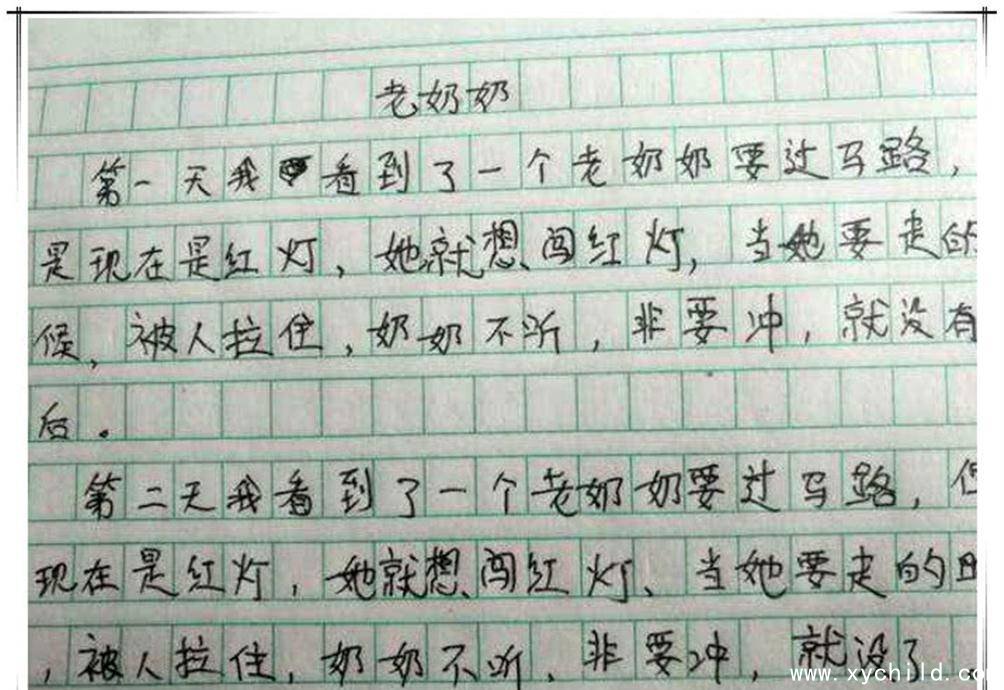 老奶奶
第一天我看到了一个老奶奶要过马路,
是现在是红灯,她就想闯红灯,当她要走的
候,被人拉住,奶奶不听,非要冲,就没有
后。
第二天我看到了一个老奶奶要过马路,
现在是红灯,她就想闯红灯、当她要走的
,被人拉住,奶奶不听,非要冲,就没了
www.xychild.com